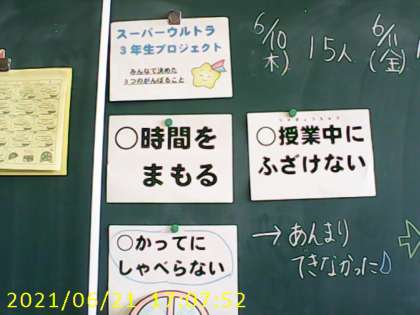 スーパーウルトラ
3年生プロジェクト
みんなで決めた
3つのがんばること
6/10
(木)
15人
6/11
(金)
○時間を
まもる
○授業中に
ふざけない
○かってに
しゃべらない
→あんまり
できなかった
2021/06/21 17:07:52